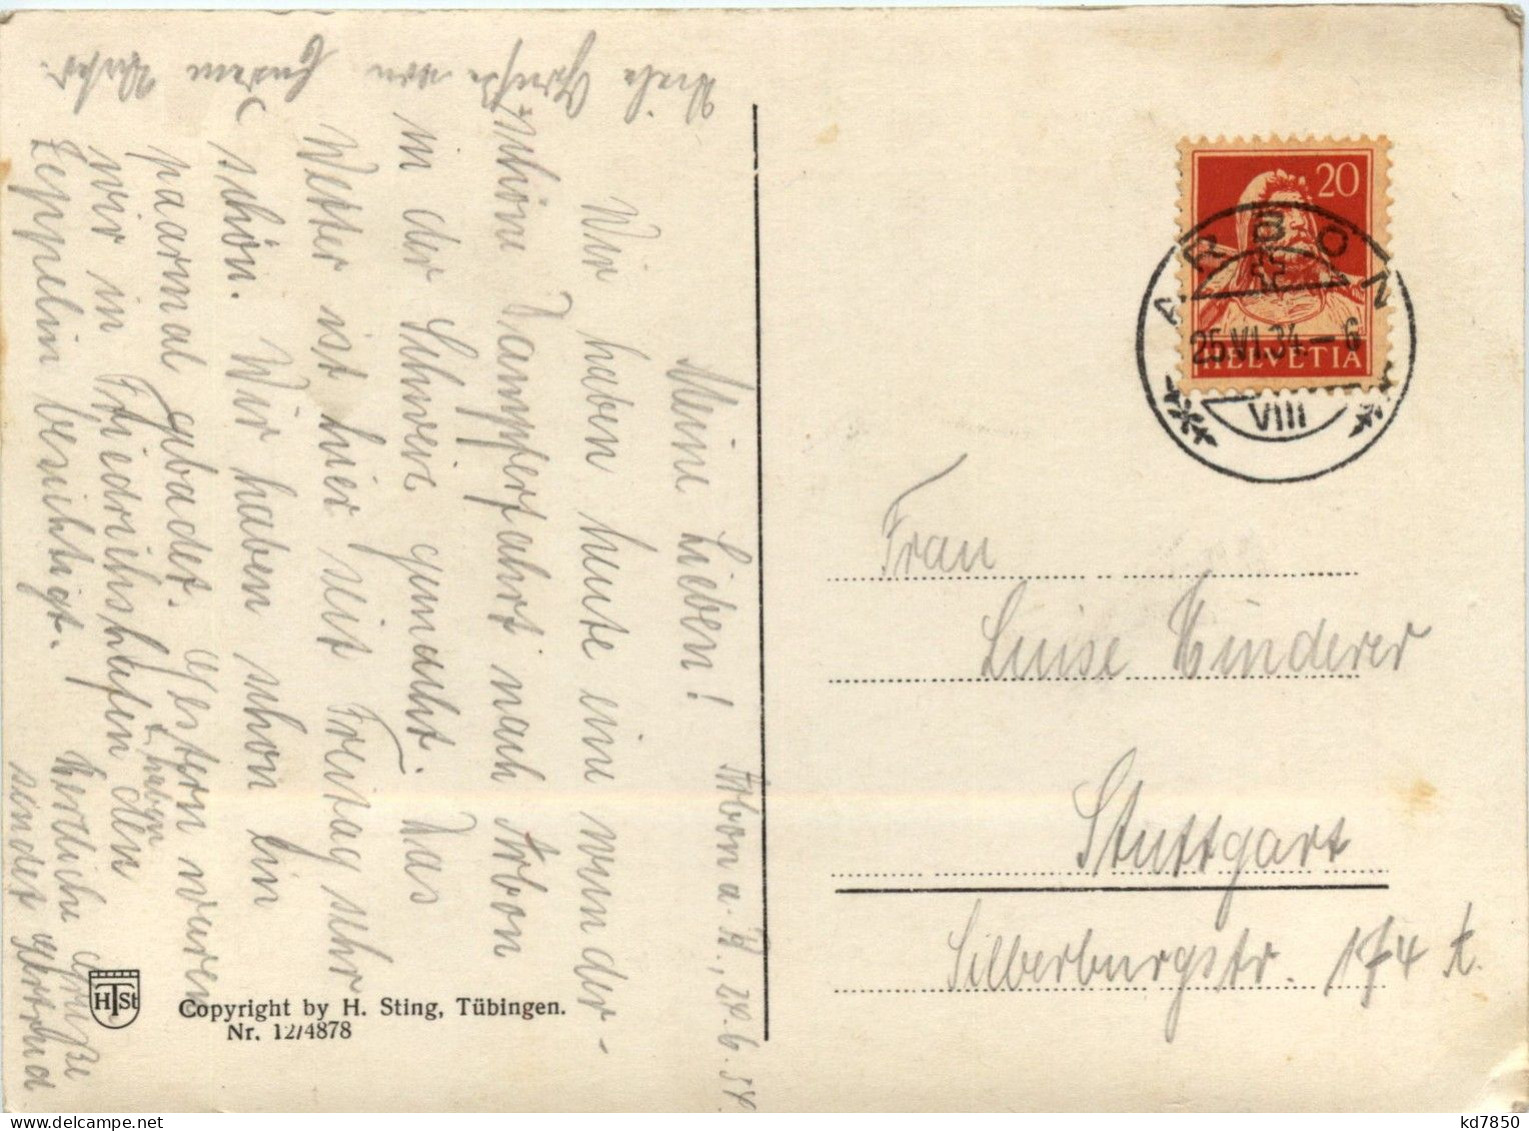 Arbon a. B., 24.6.34.
Meine Lieben!
Wir haben heute eine wunder-
schöne Dampferfahrt nach Arbon
in der Schweiz gemacht. Das
Wetter ist hier seit Freitag sehr
schön. Wir haben schon ein
paarmal gebadet. Gestern waren
wir in Friedrichshafen + haben den
Zeppelin besichtigt. Herzliche Grüße
sendet Gertrud
Viele Grüße von
20
HELVETIA
ARBON
25.VI.34.–6
VIII
Frau
Luise Kinderer
Stuttgart
Silberburgstr. 174
HTSt
Copyright by H. Sting, Tübingen.
Nr. 12/4878
kd7850